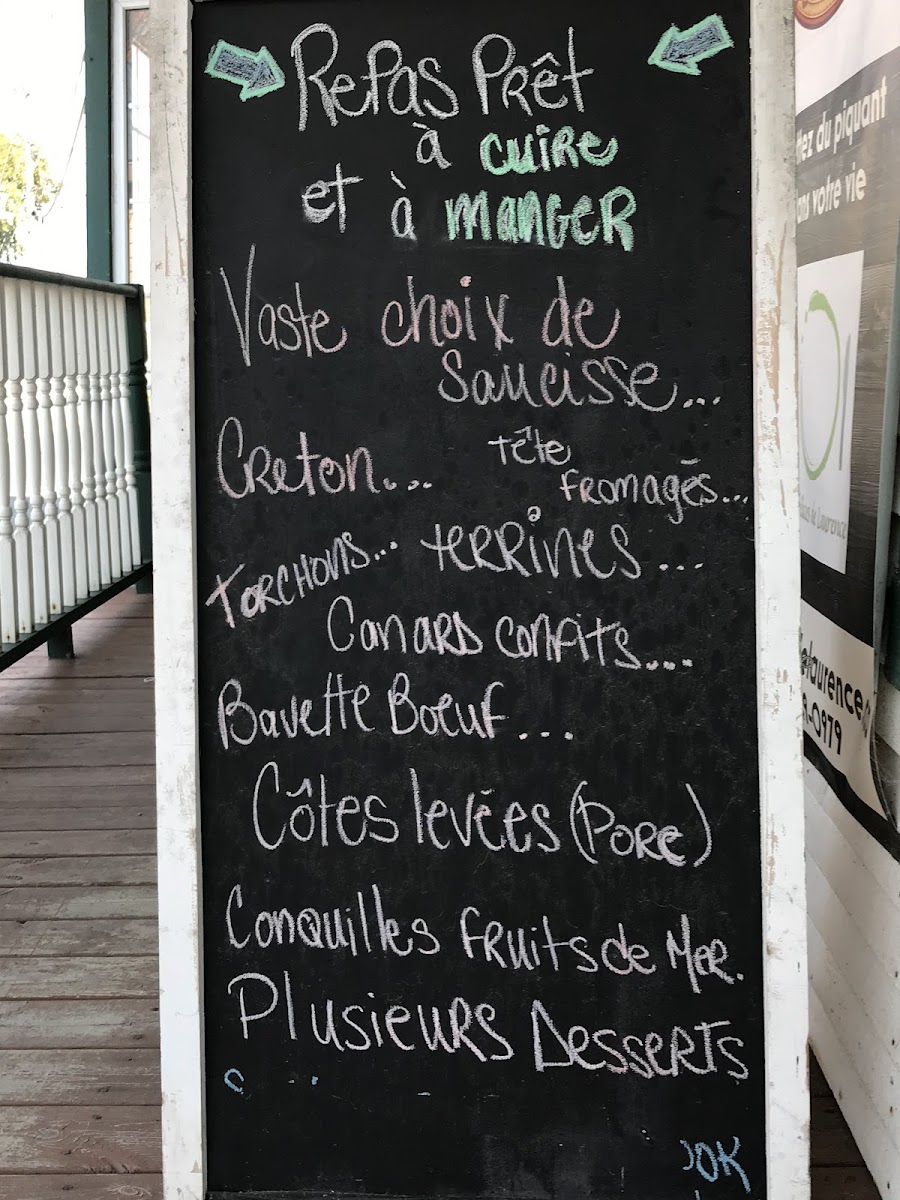 Repas Prêt
à cuire
et à manger
Vaste choix de
Saucisse...
Creton...
tête
fromagés...
Torchons... terrines...
Canards confits...
Bavette Boeuf...
Côtes levées (Porc)
Conquilles fruits de Mer.
Plusieurs Desserts
OK
tez du piquant
ans votre vie
de Laurence
laurence
-0979